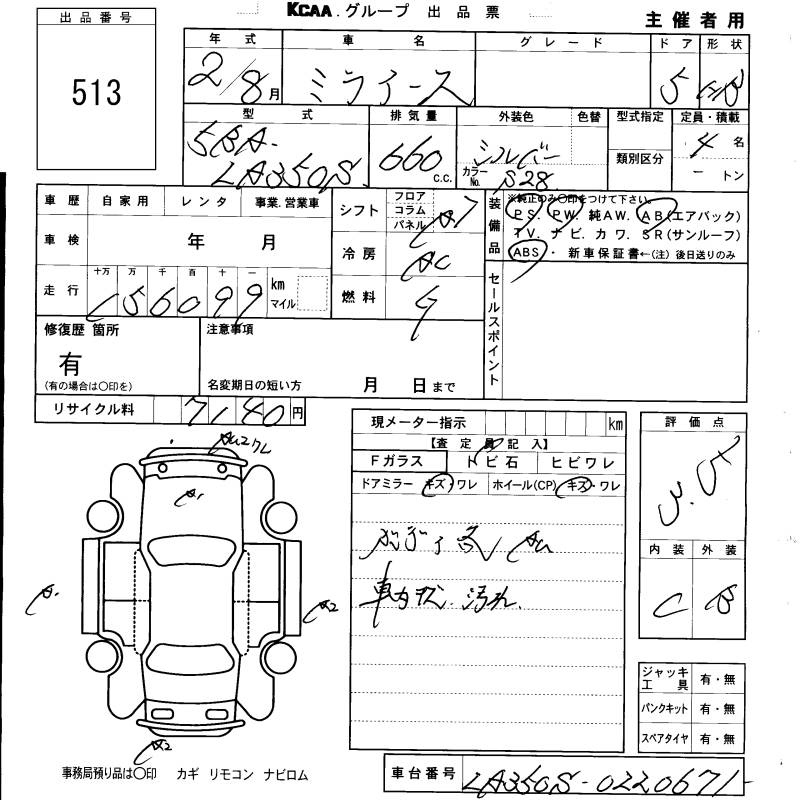 KCAA.グループ 出品票
主催者用
出品番号
513
年式 車名 グレード ドア 形状
2/8月 ミライース 5 HB
型式 排気量 外装色 色替 型式指定 定員・積載
5BA-
LA350S 660 c.c. シルバー カラーNo. S28 類別区分 4名
ートン
車歴 自家用 レンタ 事業.営業車 シフト フロア コラム パネル
装備品 ※純正のみ〇印をつけて下さい。
PS. PW. 純AW. AB(エアバック)
TV. ナビ. カワ. SR(サンルーフ)
ABS・ 新車保証書←(注)後日送りのみ
車検 年 月 冷房 AC
走行 十万 万 千 百 十 一
156099 km マイル 燃料
セールスポイント
修復歴 箇所 注意事項
有
(有の場合は〇印を) 名変期日の短い方 月 日まで
リサイクル料 7140円
現メーター指示 km
【査定員記入】
Fガラス トビ石 ヒビワレ
ドアミラー キズ・ワレ ホイール(CP) キズ・ワレ
評価点
3.5
内装 外装
C B
A2ワレ
A1
A1
A2
A2
車内 汚れ
ジャッキ工具 有・無
パンクキット 有・無
スペアタイヤ 有・無
事務局預り品は〇印 カギ リモコン ナビロム
車台番号 LA350S-0220671-